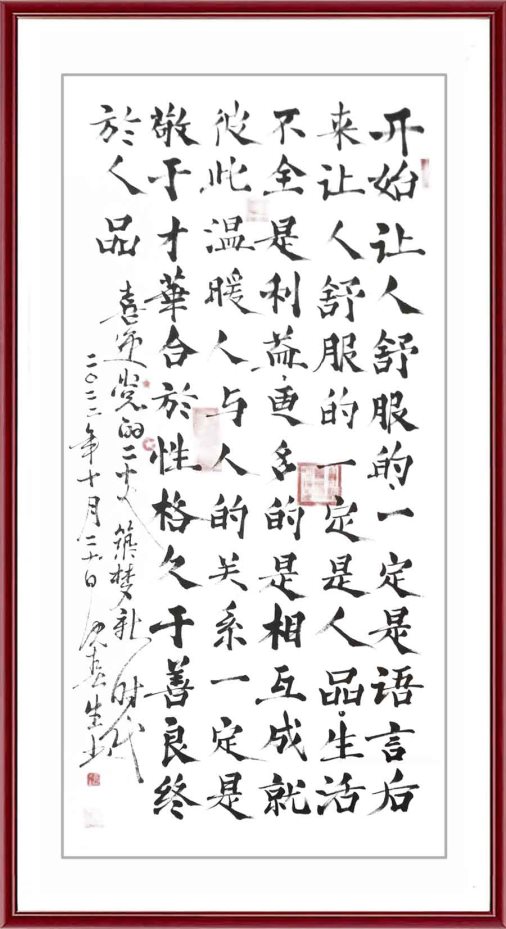 开始让人舒服的、一定是语言后
来让人舒服的一定是人品。生活
不全是利益、更多的是相互成就
彼此温暖人与人的关系一定是
敬于才華合於性格久于善良终
於人品
喜迎党的二十大 築梦新时代
二〇二二年十月二十日